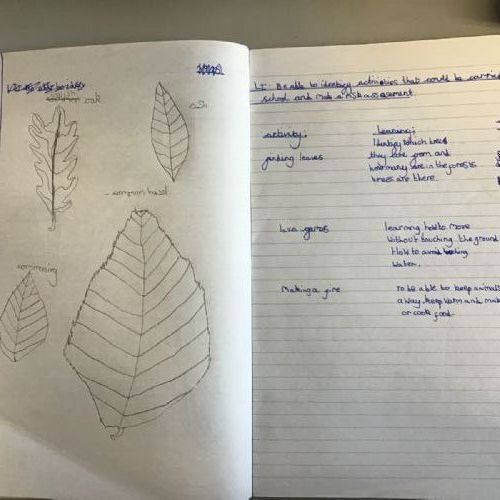 oak
ash
common hazel
LI: Be able to identify activities that could be carried
school and make a risk assessment.
activity. Learning:
finding leaves Identify which trees
they come from and
how many are in the forests
trees are there.
games learning how to move
without touching the ground
How to avoid
water.
Making a fire To be able to keep animals
away, keep warm and make
or cook food.